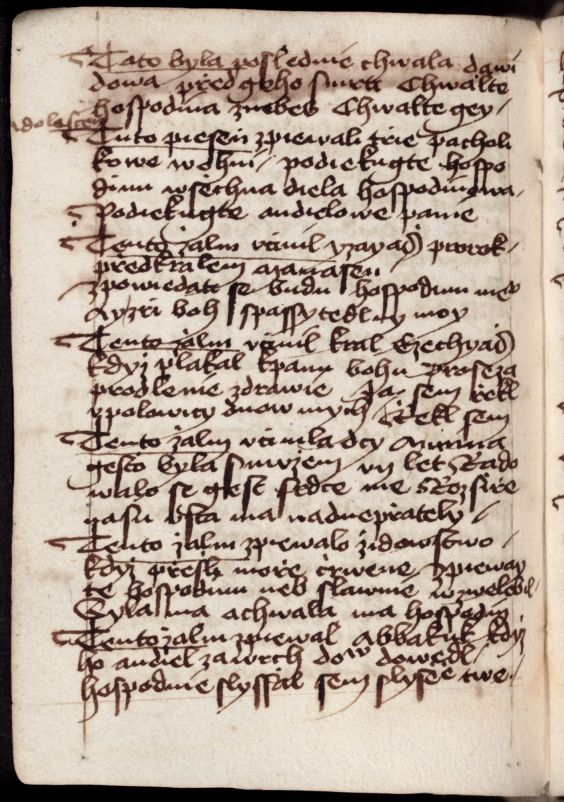 Tato byla poslednie chwala dawi
dowa před geho smrti Chwalte
hospodina znebes Chwalte gey
Tuto piesen zpiewali třie pacholi
kowe wohni podiekugte hospo
dinu wsechna diela hospodinowa
Podiekugte andielowe panie
Tento žalm vcinil yzayaš prorok
před kralem manasen
zpowiedati se budu hospodinu
Ayzri boh spassytedlny moy
Tento žalm vcinil kral Ezechyaš
kdyz plakal kpanu bohu prose za
prodlenie zdrawie Ja sem řekl
vpolowicy dnow mych Řekl sem
Tento žalm vcinila Anna
gesto byla let Rado
walo se gest srdce me Rozsire
nasu vsta ma nadneprately
Tento žalm zpiewalo židowstwo
kdyz přesli moře črwene zpieway
te hospodinu neb slawnie wzweleb
Syla ma achwala ma hospodin
Tento žalm zpiewal Abbakuk kdyz
ho andiel zawrch
hospodine slyssal sem slysenie twe